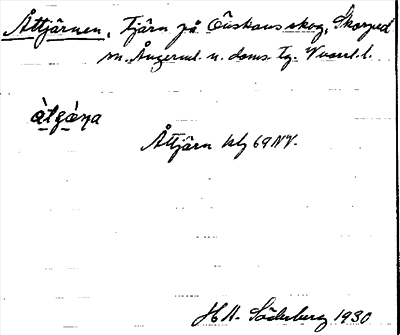 Åttjärnen, Tjärn på Öiskans skog, Skorped
sn. Ångerml. n. doms. Tg. V.norrl. l.
àtɟäṇa
Åttjärn Wbg 69 NV.
H A. Söderberg 1930